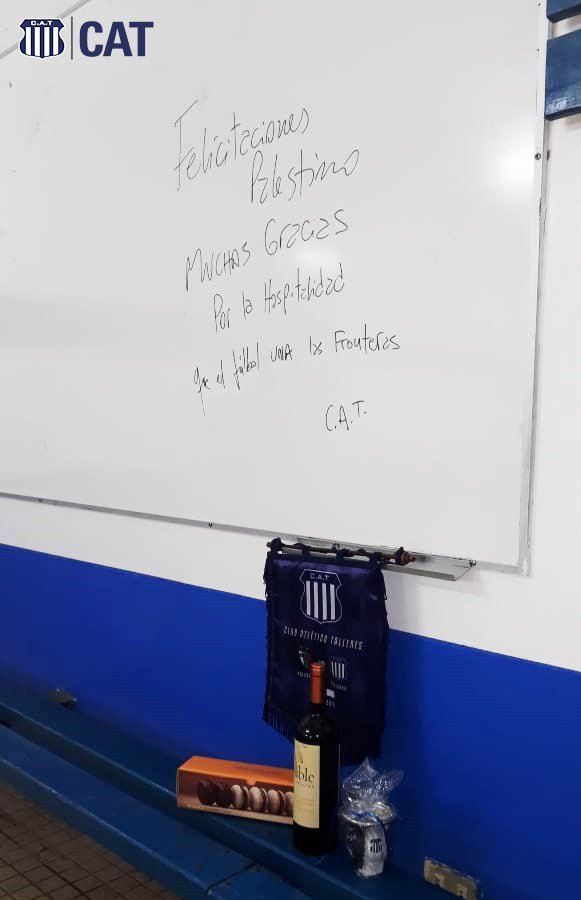 C.A.T
CAT
Felicitaciones
Palestino
Muchas Gracias
Por la Hospitalidad
Que el fútbol una las Fronteras
C.A.T.
C.A.T
CLUB ATLÉTICO TALLERES